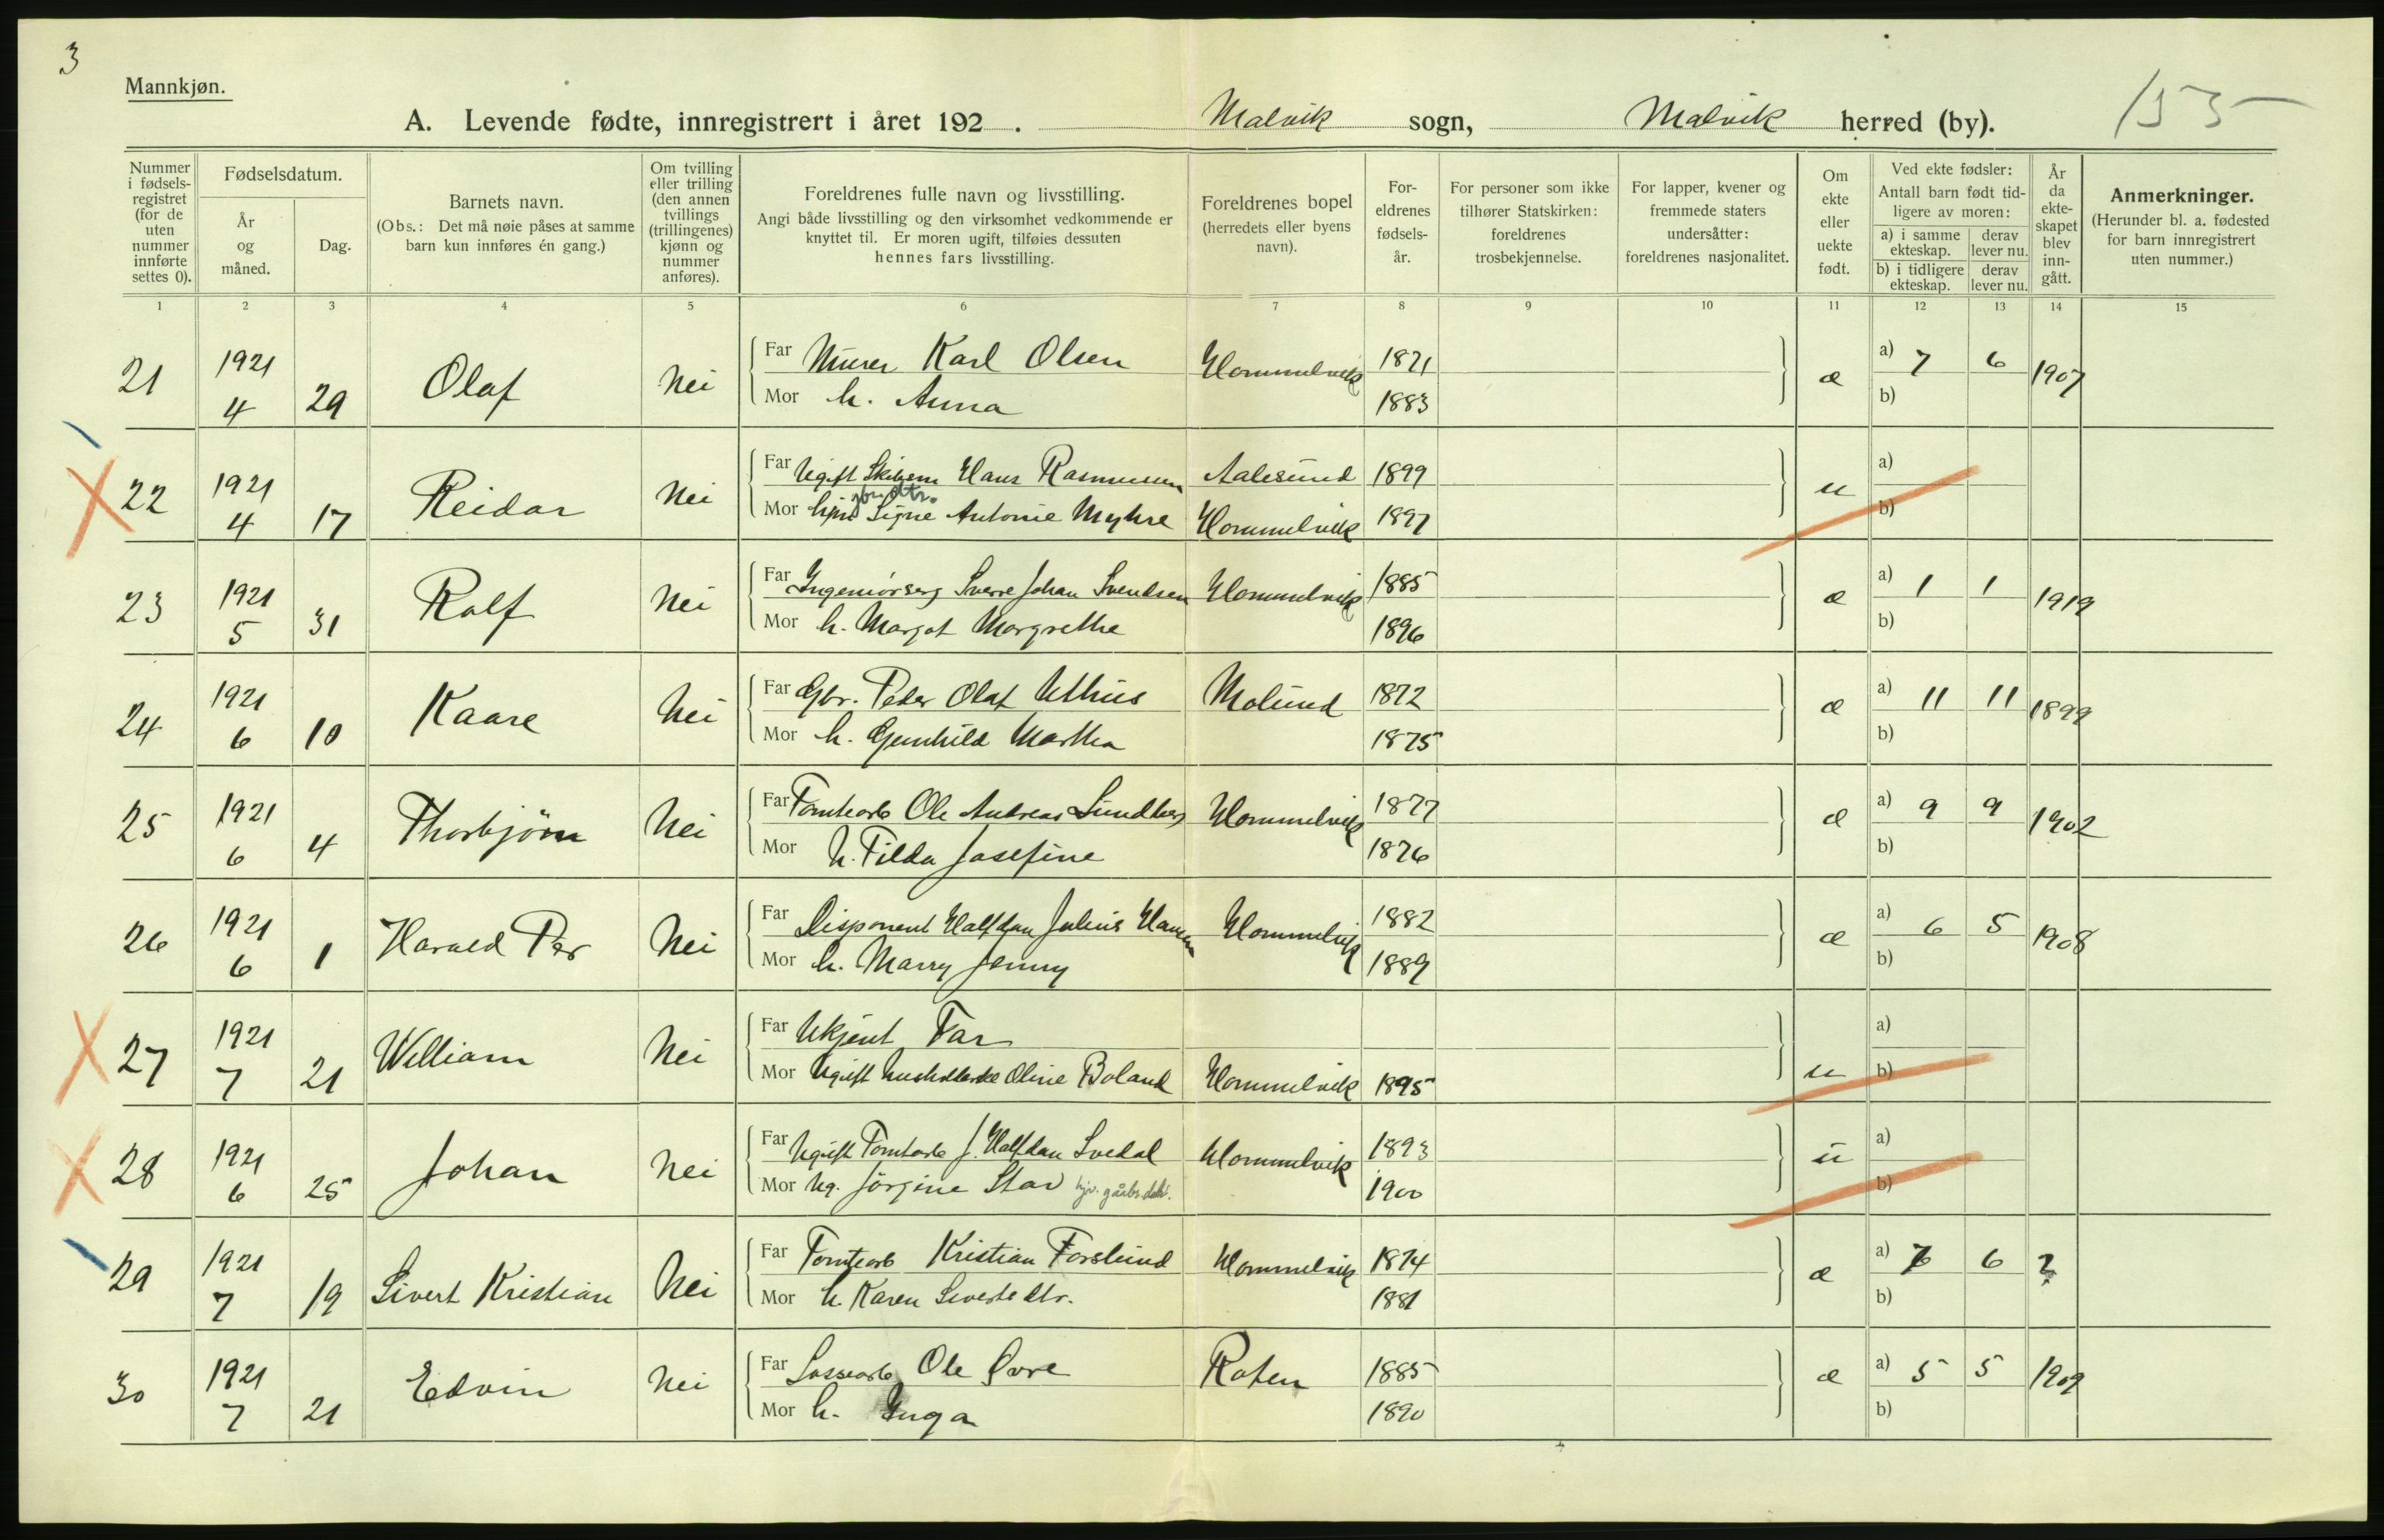 3
Mannkjøn.
A. Levende fødte, innregistrert i året 192 . Malvik sogn, Malvik herred (by). 155
Nummer i fødsels-registret (for de uten nummer innførte settes 0).
Fødselsdatum.
År og måned.
Dag.
Barnets navn.
(Obs.: Det må nøie påses at samme barn kun innføres én gang.)
Om tvilling eller trilling (den annen tvillings (trillingenes) kjønn og nummer anføres).
Foreldrenes fulle navn og livsstilling.
Angi både livsstilling og den virksomhet vedkommende er knyttet til. Er moren ugift, tilføies dessuten hennes fars livsstilling.
Foreldrenes bopel (herredets eller byens navn).
For-eldrenes fødsels-år.
For personer som ikke tilhører Statskirken: foreldrenes trosbekjennelse.
For lapper, kvener og fremmede staters undersåtter: foreldrenes nasjonalitet.
Om ekte eller uekte født.
Ved ekte fødsler:
Antall barn født tid-ligere av moren:
a) i samme ekteskap. derav lever nu.
b) i tidligere ekteskap. derav lever nu.
År da ekte-skapet blev inn-gått.
Anmerkninger.
(Herunder bl. a. fødested for barn innregistrert uten nummer.)
1 2 3 4 5 6 7 8 9 10 11 12 13 14 15
21 1921 4 29 Olaf Nei Far Murer Karl Olsen Hommelvik 1871 æ a) 7 6 1907
Mor h. Anna 1883 b)
22 1921 4 17 Reidar Nei Far Ugift Hans Rasmussen Aalesund 1899 u a)
gbr. dtr.
Mor Signe Antonie Myhre Hommelvik 1897 b)
23 1921 5 31 Rolf Nei Far Ingeniør Sverre Johan Svendsen Hommelvik 1885 æ a) 1 1 1919
Mor h. Margot Margrethe 1896 b)
24 1921 6 10 Kaare Nei Far Gbr. Peder Olaf Uthus Molund 1872 æ a) 11 11 1899
Mor h. Gunhild Martha 1875 b)
25 1921 6 4 Thorbjörn Nei Far Tomtearb Ole Andreas Sundberg Hommelvik 1877 æ a) 9 9 1902
Mor h. Tilda Josefine 1876 b)
26 1921 6 1 Harald Per Nei Far Disponent Halfdan Julius Hansen Hommelvik 1882 æ a) 6 5 1908
Mor h. Marry Jenny 1889 b)
27 1921 7 21 William Nei Far Ukjent Far u a)
Mor Ugift Husholderske Oline Boland Hommelvik 1895 b)
28 1921 6 25 Johan Nei Far Ugift Tomtearb J. Halfdan Svedal Hommelvik 1893 u a)
Mor Ug. Jörgine Stav 1900 b)
29 1921 7 19 Sivert Kristian Nei Far Tomtearb Kristian Forslund Hommelvik 1874 æ a) 7 6 ?
Mor h. Karen Sivertsdtr. 1881 b)
30 1921 7 21 Edvin Nei Far Ole Øvre Roten 1885 æ a) 5 5 1909
Mor h. Inga 1890 b)